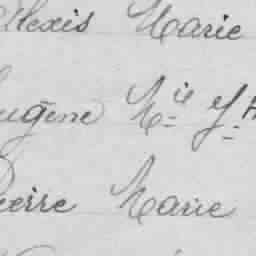 Alexis Marie
Eugène M.ie J.h
Pierre Marie